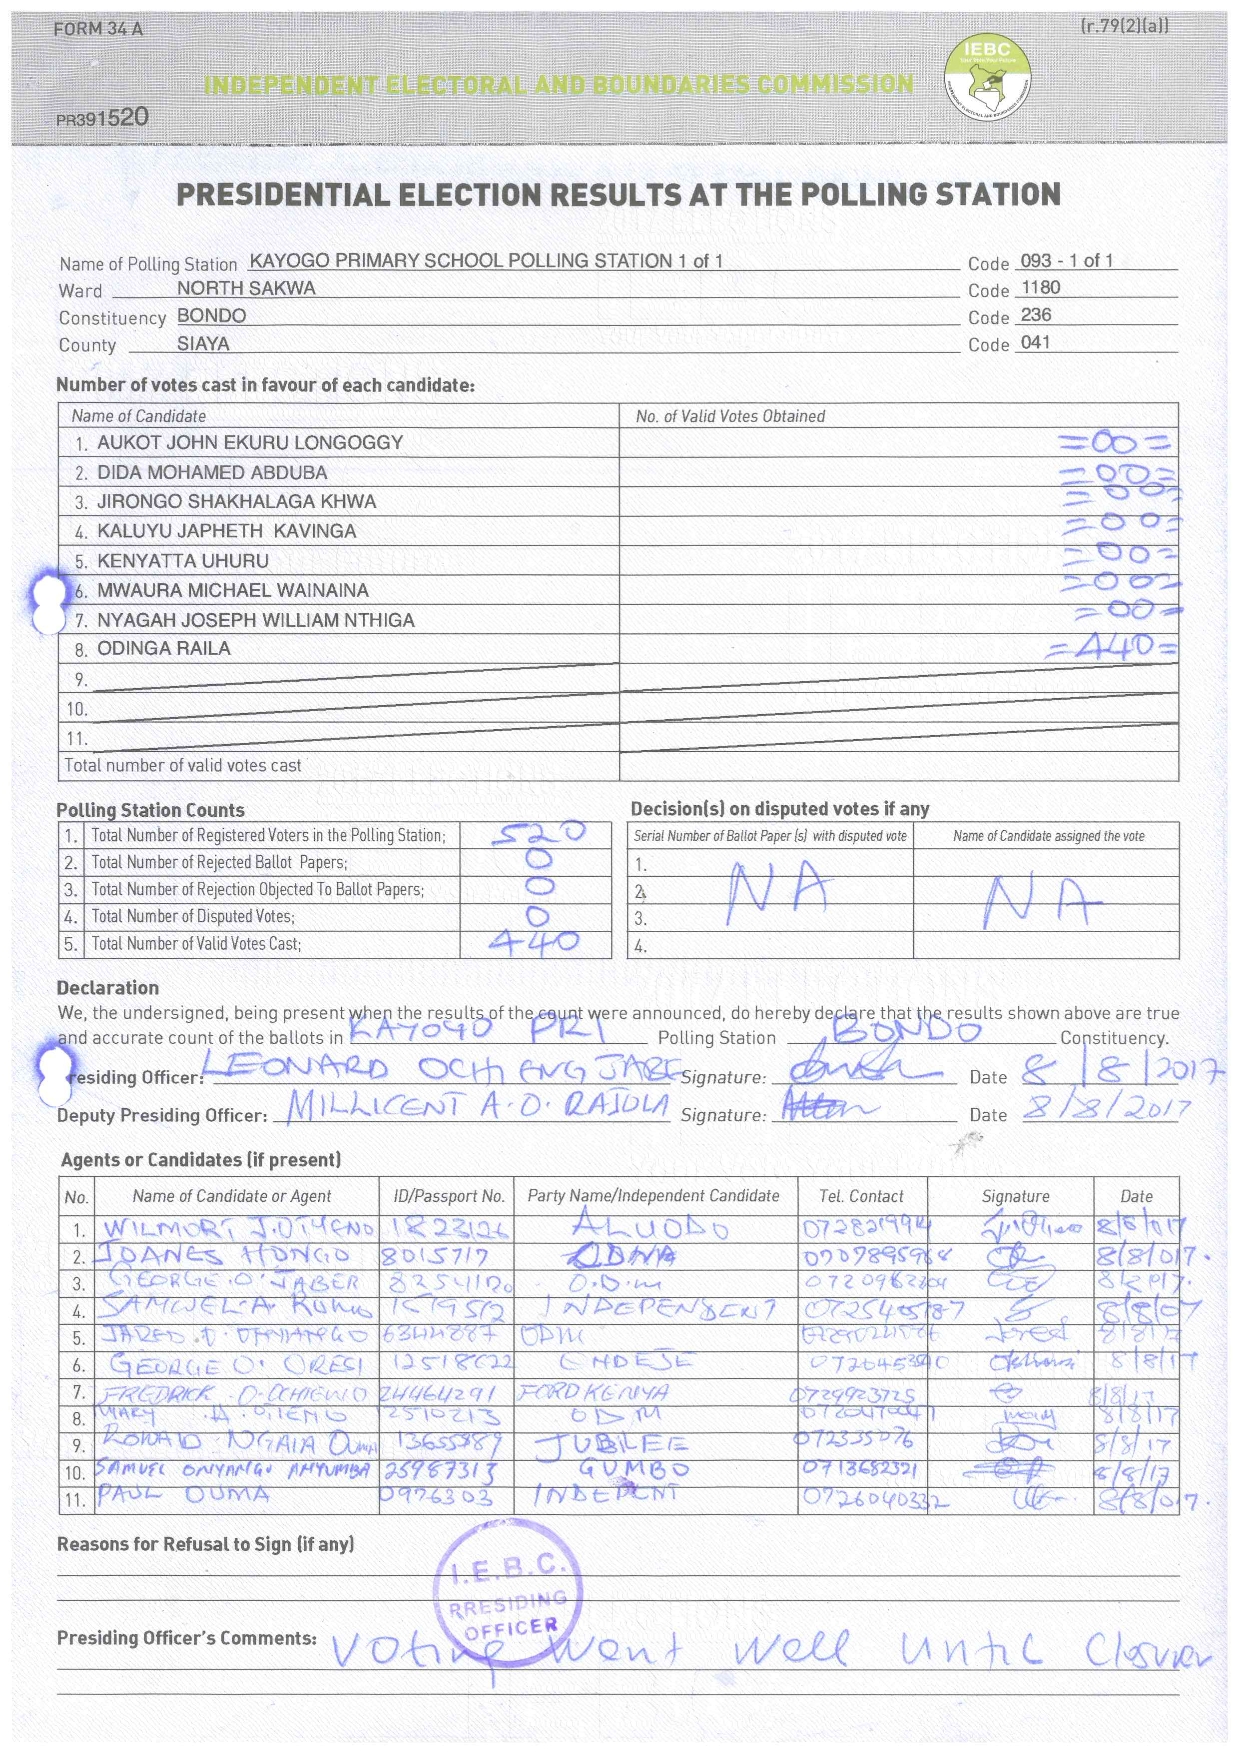 FORM 34 A
(r.79(2)(a))
IEBC
INDEPENDENT ELECTORAL AND BOUNDARIES COMMISSION
PR391520
PRESIDENTIAL ELECTION RESULTS AT THE POLLING STATION
Name of Polling Station KAYOGO PRIMARY SCHOOL POLLING STATION 1 of 1 Code 093 - 1 of 1
Ward NORTH SAKWA Code 1180
Constituency BONDO Code 236
County SIAYA Code 041
Number of votes cast in favour of each candidate:
Name of Candidate No. of Valid Votes Obtained
1. AUKOT JOHN EKURU LONGOGGY =00=
2. DIDA MOHAMED ABDUBA =00=
3. JIRONGO SHAKHALAGA KHWA =00=
4. KALUYU JAPHETH KAVINGA =00=
5. KENYATTA UHURU =00=
6. MWAURA MICHAEL WAINAINA =00=
7. NYAGAH JOSEPH WILLIAM NTHIGA =00=
8. ODINGA RAILA =440=
9.
10.
11.
Total number of valid votes cast
Polling Station Counts
1. Total Number of Registered Voters in the Polling Station; 520
2. Total Number of Rejected Ballot Papers; 0
3. Total Number of Rejection Objected To Ballot Papers; 0
4. Total Number of Disputed Votes; 0
5. Total Number of Valid Votes Cast; 440
Decision(s) on disputed votes if any
Serial Number of Ballot Paper (s) with disputed vote Name of Candidate assigned the vote
1.
2. NA NA
3.
4.
Declaration
We, the undersigned, being present when the results of the count were announced, do hereby declare that the results shown above are true
and accurate count of the ballots in KAYOGO PRI Polling Station BONDO Constituency.
residing Officer: LEONARD OCHIENG JABE Signature: Date 8/8/2017
Deputy Presiding Officer: MILLICENT A.O. RAJULA Signature: Date 8/8/2017
Agents or Candidates (if present)
No. Name of Candidate or Agent ID/Passport No. Party Name/Independent Candidate Tel. Contact Signature Date
1. WILMORT J.OTIENO 1823126 ALUODO 8/8/017
2. JOANES HONGO 8015717 8/8/017.
3. GEORGE O. JABER O.D.M
4. SAMWEL A. INDEPENDENT
5. JARED O. ODM 8/8/17
6. GEORGE O. ORESI 8/8/17
7. FREDRICK O. OCHIENO 24464291 FORD KENYA 0729923725 8/8/17
8. MARY A. OTIENO 12510213 ODM 8/8/17
9. RONALD NGAIA 13655389 JUBILEE 8/8/17
10. SAMUEL ONYANGO 25987313 GUMBO 0713682321 8/8/17
11. PAUL OUMA 0976303 INDEPENT 0726040332 8/8/017.
Reasons for Refusal to Sign (if any)
I.E.B.C.
RRESIDING
OFFICER
Presiding Officer's Comments: Voting went well until Closure